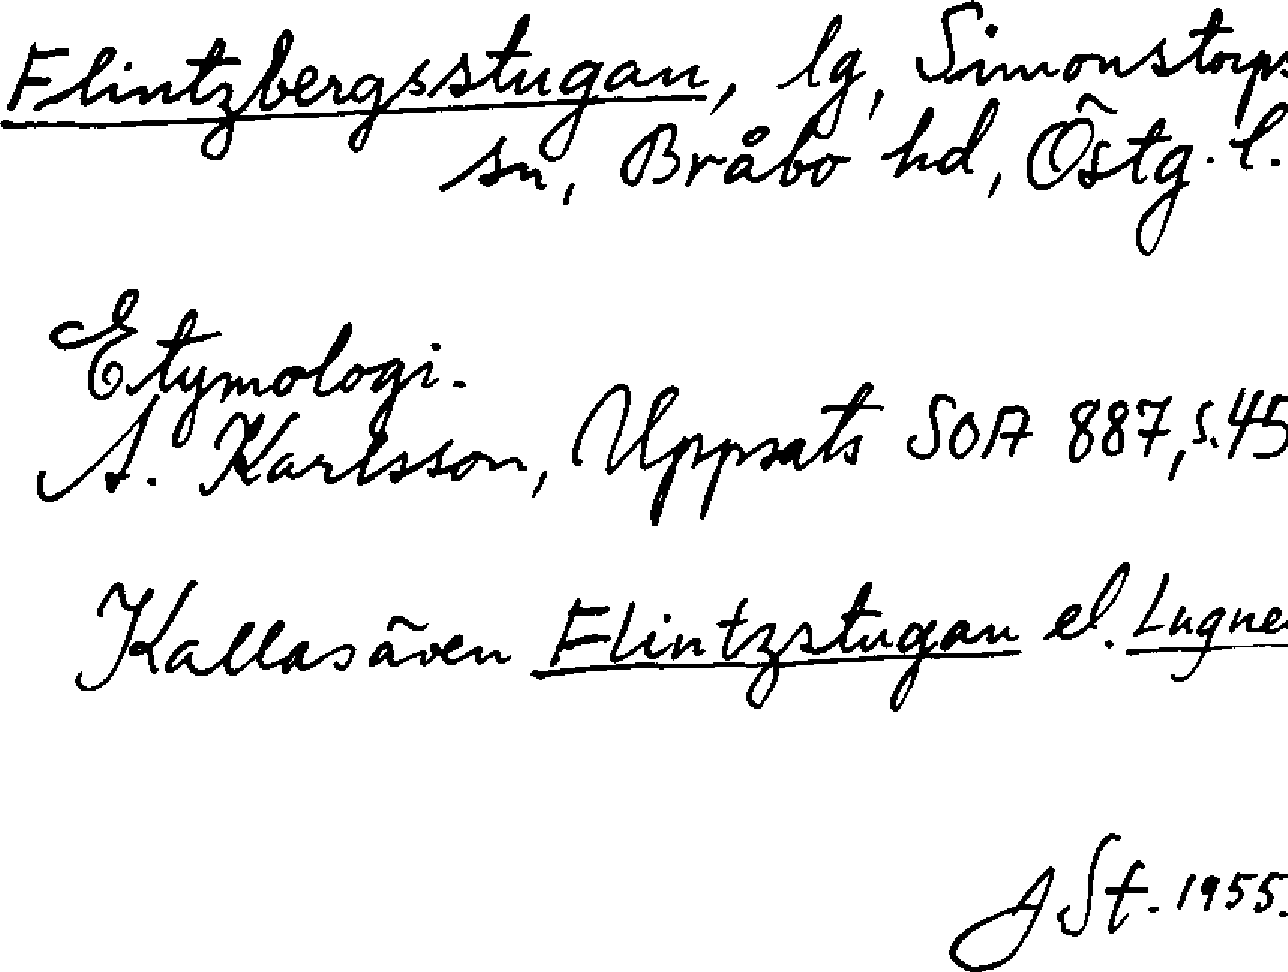 Flintzbergsstugan, lg, Simonstorps
sn, Bråbo hd, Östg. l.
Etymologi.
A. Karlsson, Uppsats SOA 887, s. 45
Kallas även Flintzstugan el.
J St. 1955.